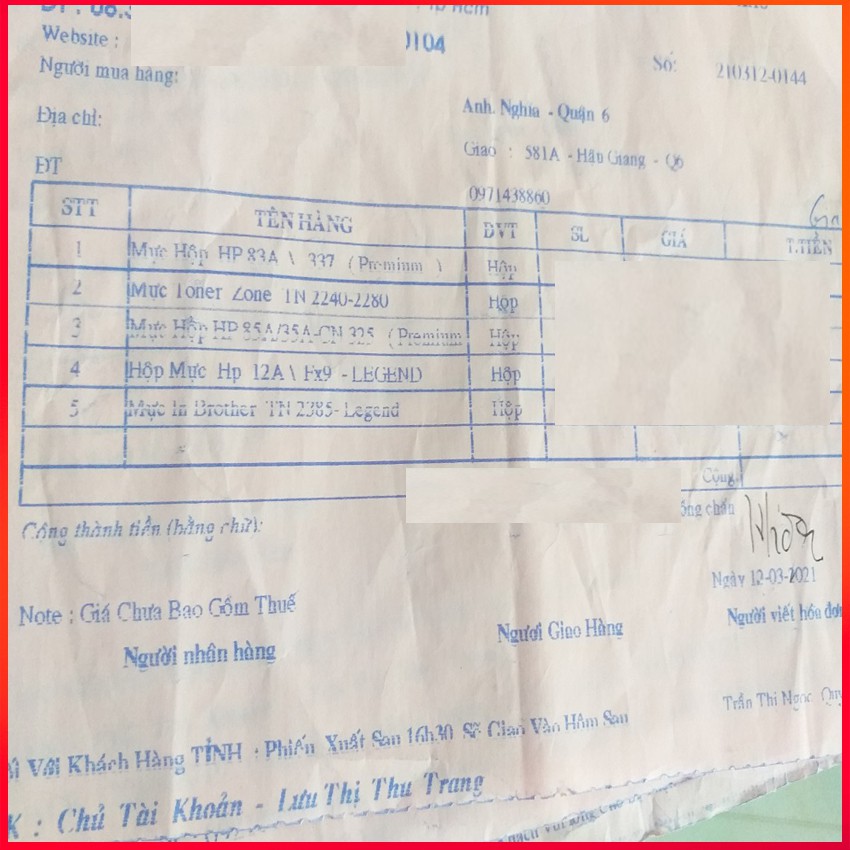 Tp Hcm
Website : 0104
Người mua hàng:
Số: 210312-0144
Anh. Nghia - Quận 6
Địa chỉ:
Giao : 581A - Hậu Giang - Q6
ĐT 0971438860
STT TÊN HÀNG ĐVT SL GIÁ T.TIỀN
1 Mực Hộp HP 83A \ 337 ( Premium ) Hộp
2 Mực Toner Zone TN 2240-2280 Hộp
3 Mực Hộp HP 85A/35A-CN 325 ( Premium Hộp
4 Hộp Mực Hp 12A \ Fx9 - LEGEND Hộp
5 Mực In Brother TN 2385- Legend Hộp
Cộng
Cộng thành tiền (bằng chữ): đồng chẵn
Ngày 12-03-2021
Note : Giá Chưa Bao Gồm Thuế
Người nhân hàng Ngươi Giao Hàng Người viết hóa đơn
Trần Thi Ngọc
Với Khách Hàng TỈNH : Phiếu Xuất Sau 16h30 Sẽ Giao Vào Hôm Sau
K : Chủ Tài Khoản - Lưu Thị Thu Trang